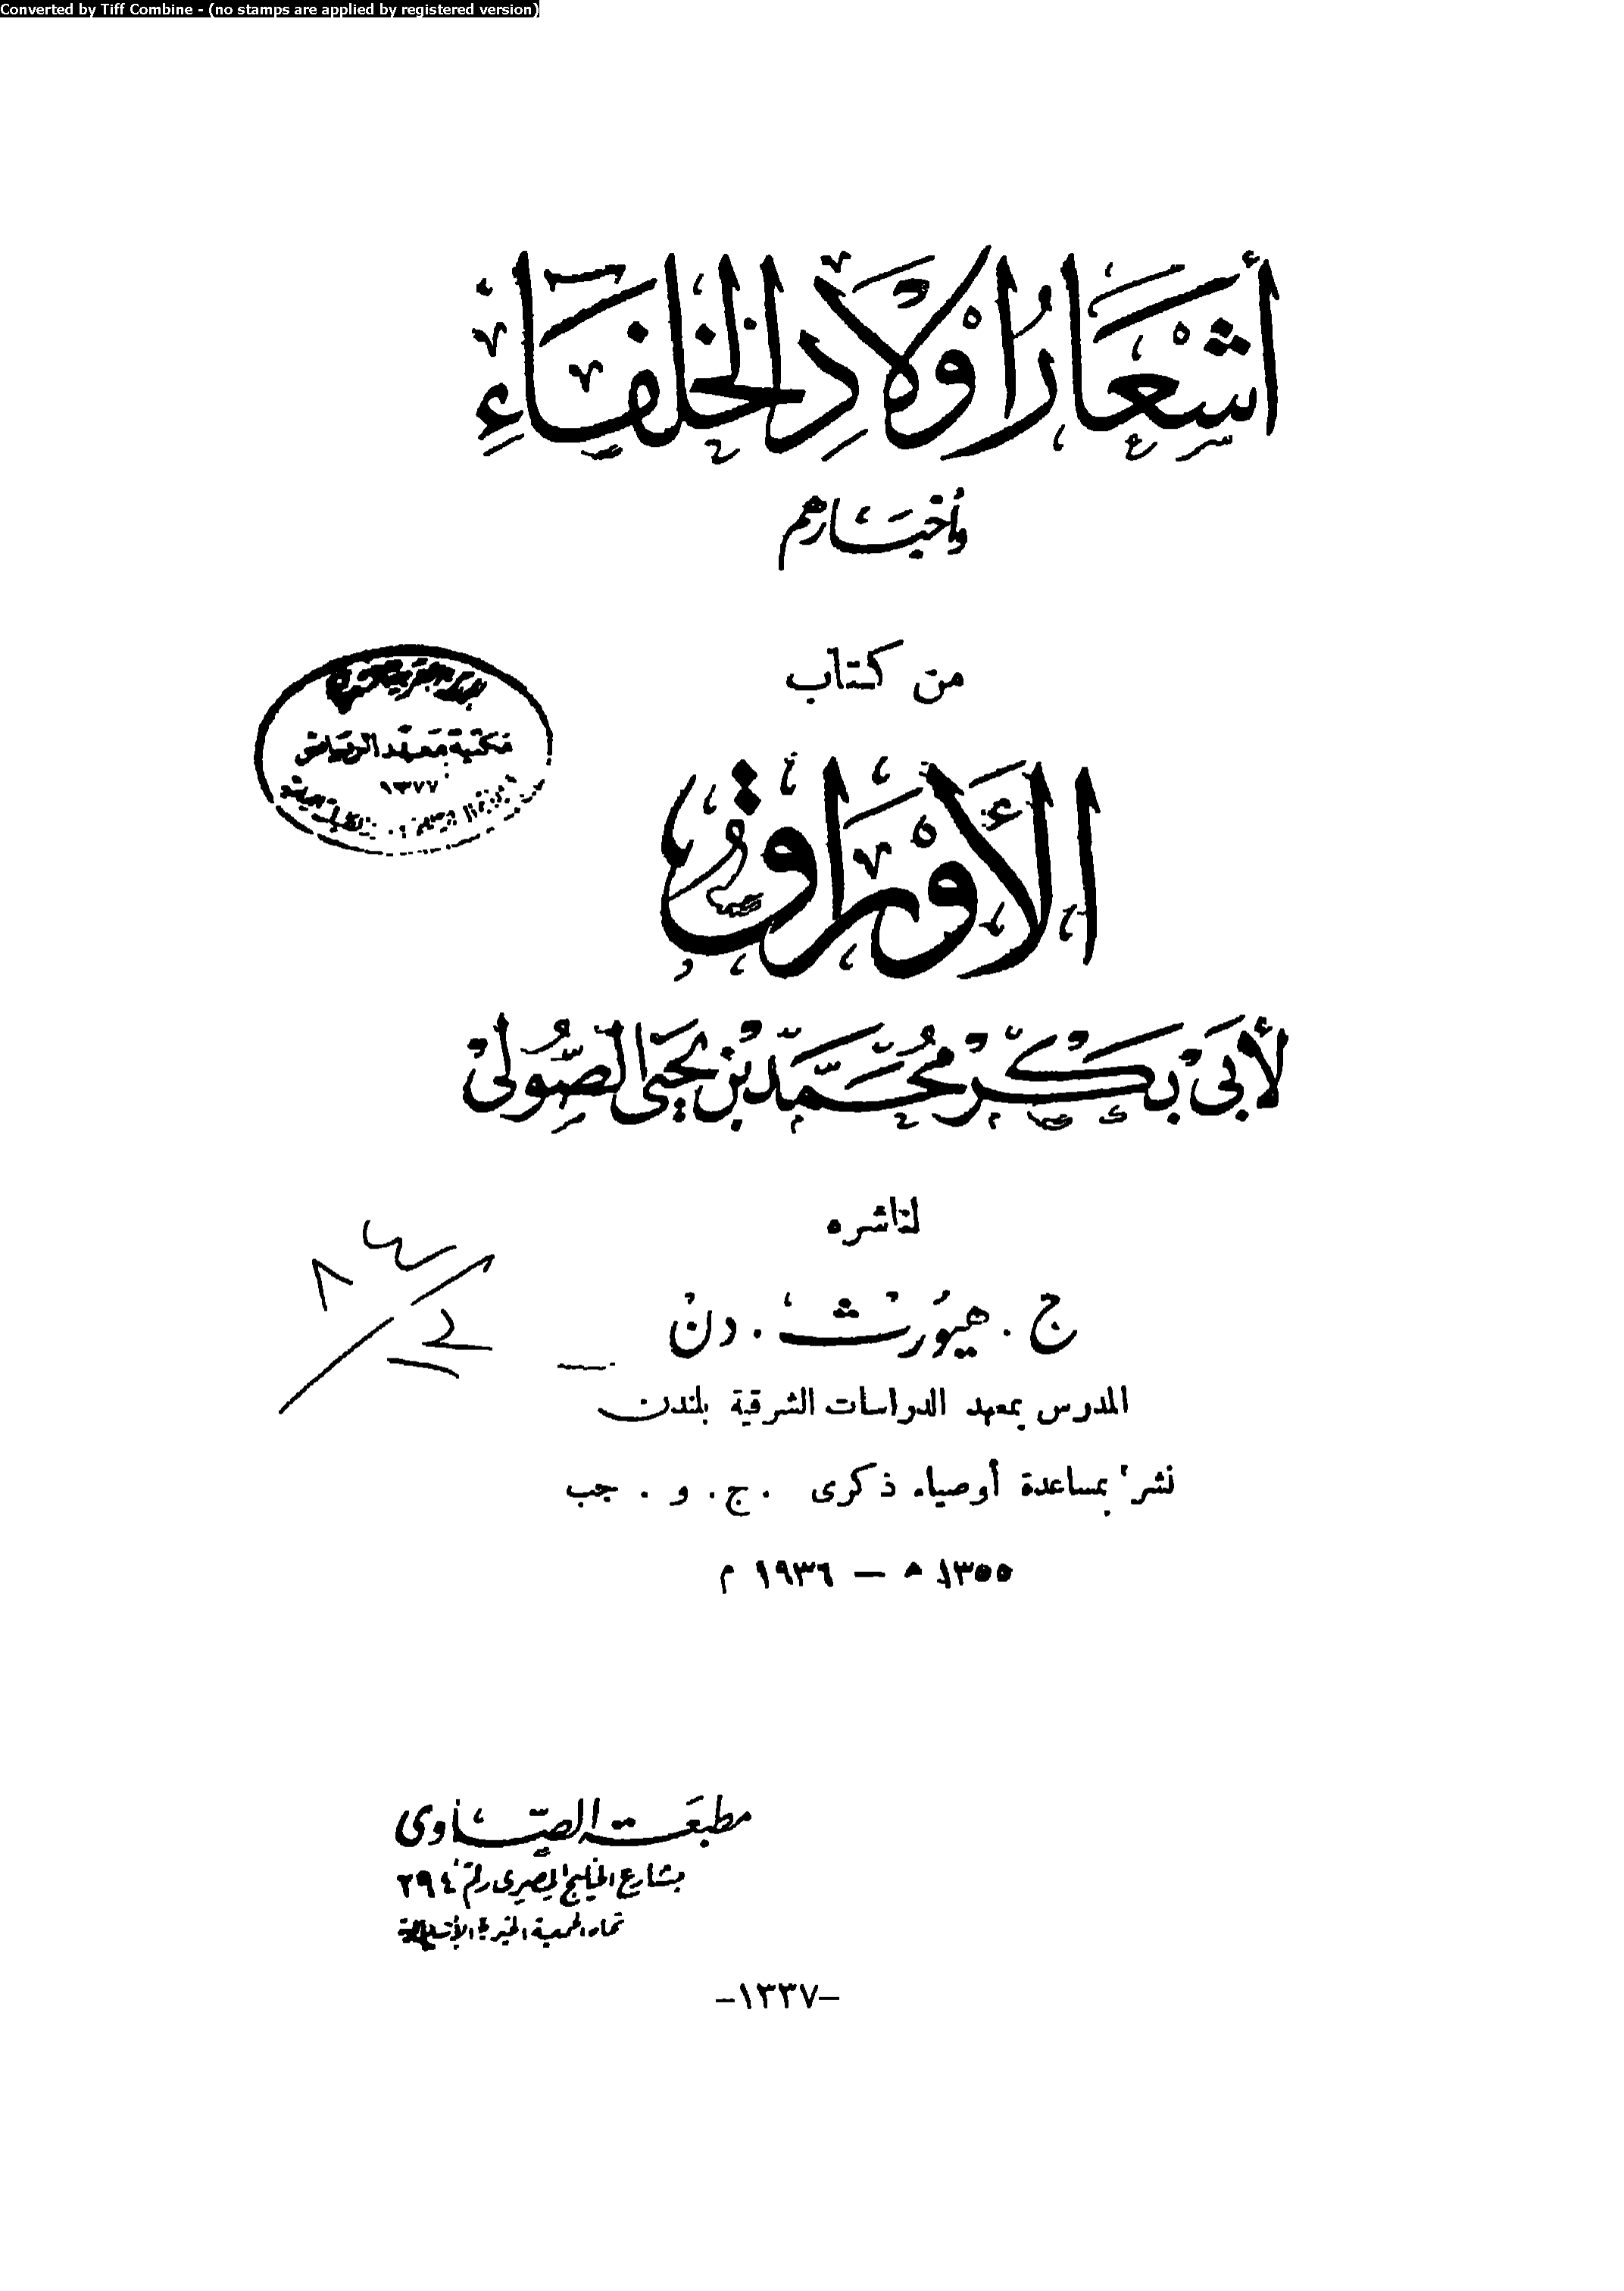 Converted by Tiff Combine - (no stamps are applied by registered version)
أَشْعَارُ أَوْلَادِ الْخُلَفَاءِ
وأخبارهم
من كتاب
مكتبة معهد الرياض
١٣٧٧
الأَوْرَاق
لأبي بكر محمد بن يحيى الصولي
لناشره
ج . هيورث . دن
المدرس بمعهد الدراسات الشرقية بلندن
نشر بمساعدة أوصياء ذكرى . ج . و . جب
١٣٥٥ ه — ١٩٣٦ م
مطبعة الصاوى
بشارع الخليج المصرى رقم ٢٩٤
تجاه الجمعية الخيرية
-١٣٣٧-